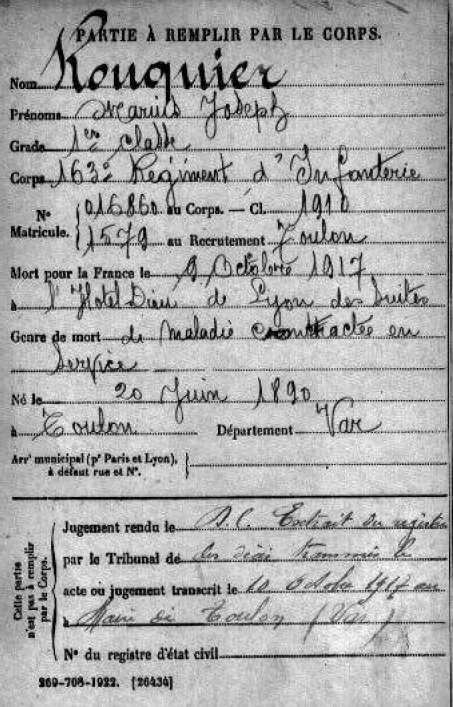 PARTIE À REMPLIR PAR LE CORPS.
Nom Rouquier
Prénoms Marius Joseph
Grade 1er classe
Corps 163e Régiment d'Infanterie
N° Matricule. 016860 au Corps. — Cl. 1910
1579 au Recrutement Toulon
Mort pour la France le 9 Octobre 1917
à l'Hotel Dieu de Lyon des suites
Genre de mort de maladie contractée en
service
Né le 20 Juin 1890
à Toulon Département Var
Arrt municipal (pr Paris et Lyon),
à défaut rue et N°.
Cette partie
n'est pas à remplir
par le Corps.
Jugement rendu le D.C. Extrait du registre
par le Tribunal de des décès transmis le
acte ou jugement transcrit le 10 Octobre 1917 au
à Maire de Toulon (Var)
N° du registre d'état civil
269-708-1922. [26434]